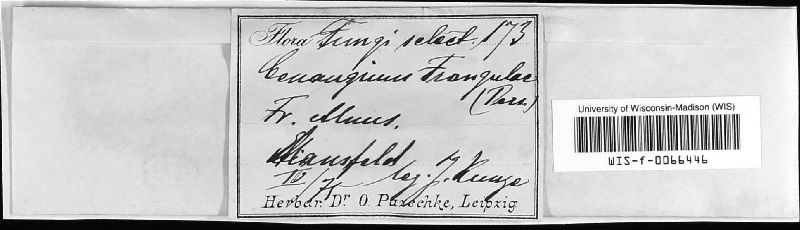 Flora Fungi select. 173
Cenangium Frangulae
(Pers.)
Fr. Alnus.
Mansfeld
IV/71 leg. J. Kunze
Herbar. Dr. O. Pazschke, Leipzig.
University of Wisconsin-Madison (WIS)
WIS-f-0066446